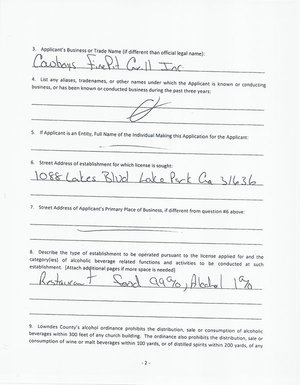 3. Applicant's Business or Trade Name (if different than official legal name):
Cowboys FirePit Grill Inc
4. List any aliases, tradenames, or other names under which the Applicant is known or conducting
business, or has been known or conducted business during the past three years:
5. If Applicant is an Entity, Full Name of the Individual Making this Application for the Applicant:
6. Street Address of establishment for which license is sought:
1088 Lakes Blvd Lake Park Ga 31636
7. Street Address of Applicant's Primary Place of Business, if different from question #6 above:
8. Describe the type of establishment to be operated pursuant to the license applied for and the
category(ies) of alcoholic beverage related functions and activities to be conducted at such
establishment. [Attach additional pages if more space is needed]
Restaurant Food 99%, Alcohol 1%
9. Lowndes County's alcohol ordinance prohibits the distribution, sale or consumption of alcoholic
beverages within 300 feet of any church building. The ordinance also prohibits the distribution, sale or
consumption of wine or malt beverages within 100 yards, or of distilled spirits within 200 yards, of any
- 2 -